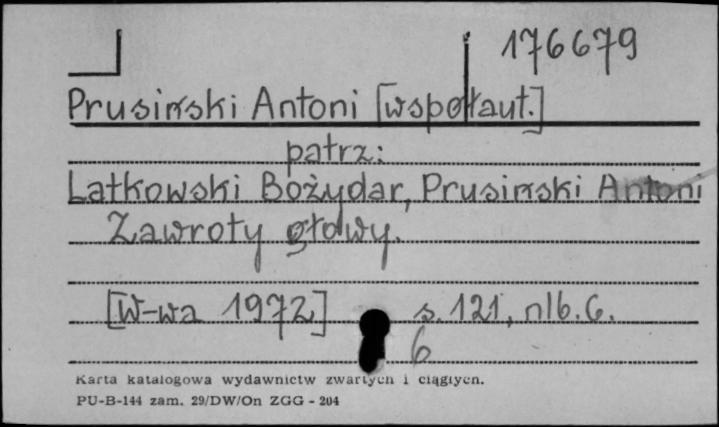 176679
Prusiński Antoni [współaut.]
patrz:
Latkowski Bożydar, Prusiński Antoni
Zawroty głowy.
[W-wa 1972] s. 121, nlb. 6.
6
Karta katalogowa wydawnictw zwartych i ciągłych.
PU-B-144 zam. 29/DW/On ZGG - 204